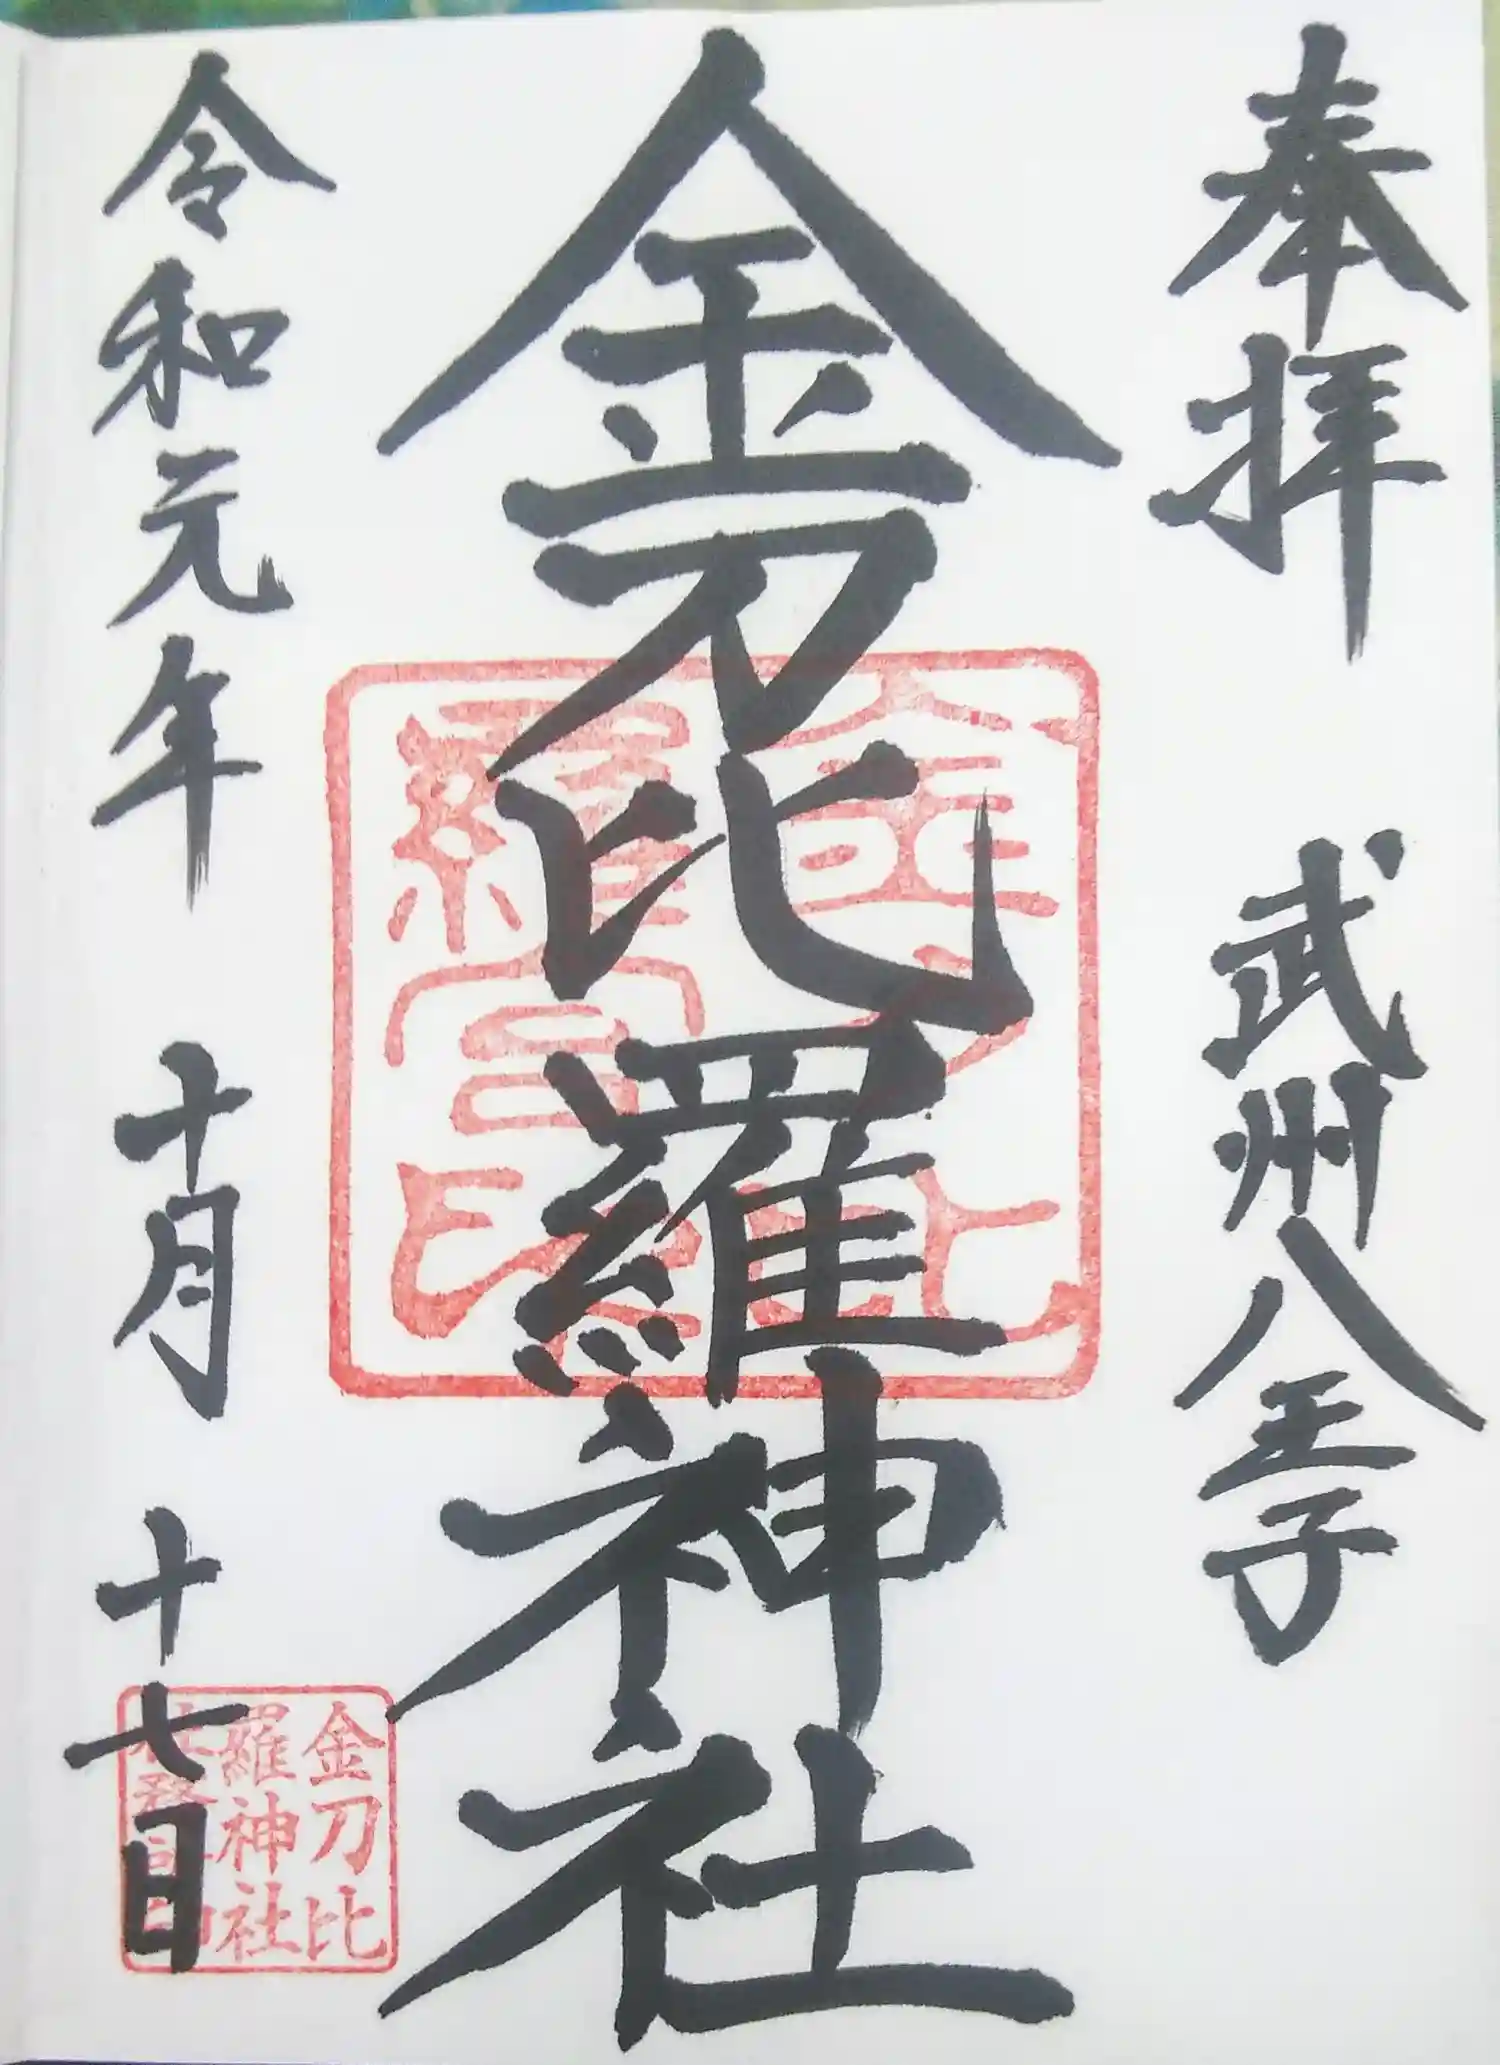 奉拝 武州八王子
金刀比羅神社
令和元年 十月 十七日
金刀比
羅宮印
金刀比
羅神社
社務証印